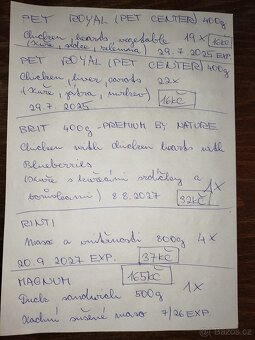 PET ROYAL (PET CENTER) 400g
Chicken, hearts, vegetable 19x 16Kč
(kuře, srdce, zelenina) 29.7.2025 EXP.
PET ROYAL (PET CENTER) 400g
Chicken, liver, carots 22x
(kuře, játra, mrkev) 16Kč
29.7.2025
BRIT 400g - PREMIUM BY NATURE
Chicken with chicken hearts with
Blueberries
(kuře s kuřecími srdíčky a 1x
borůvkami) 8.8.2027 32Kč
RINTI
Maso a vnitřnosti 800g 4x
20.9.2027 EXP. 37Kč
MAGNUM 165Kč
Duck sandwich 500g 1x
Kachní sušené maso 7/26 EXP.
bazoš.cz